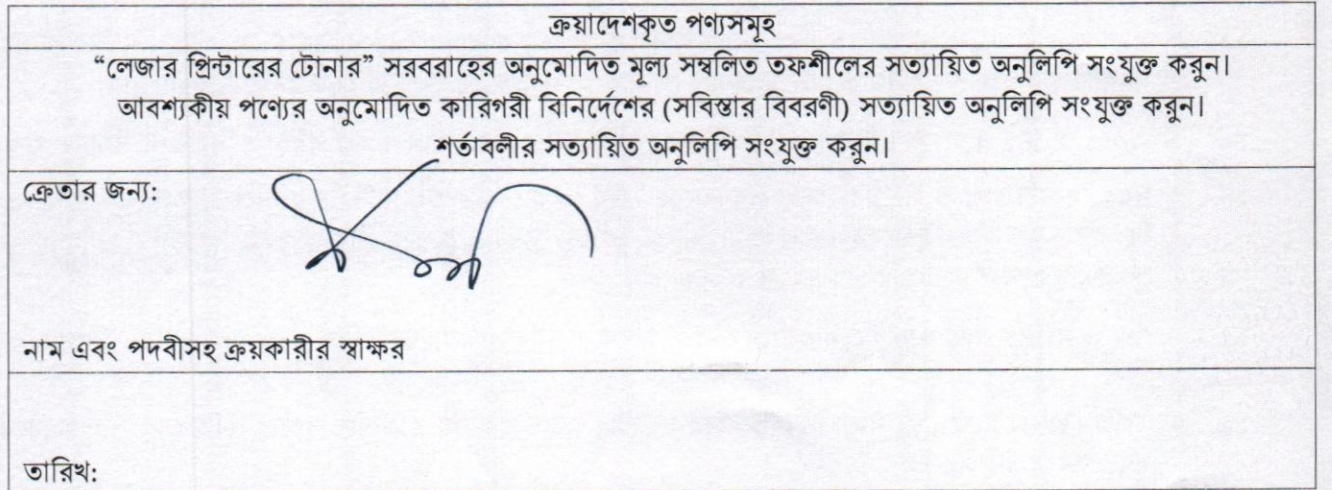 ক্রয়াদেশকৃত পণ্যসমূহ
“লেজার প্রিন্টারের টোনার” সরবরাহের অনুমোদিত মূল্য সম্বলিত তফশীলের সত্যায়িত অনুলিপি সংযুক্ত করুন।
আবশ্যকীয় পণ্যের অনুমোদিত কারিগরী বিনির্দেশের (সবিস্তার বিবরণী) সত্যায়িত অনুলিপি সংযুক্ত করুন।
শর্তাবলীর সত্যায়িত অনুলিপি সংযুক্ত করুন।
ক্রেতার জন্য:
নাম এবং পদবীসহ ক্রয়কারীর স্বাক্ষর
তারিখ: